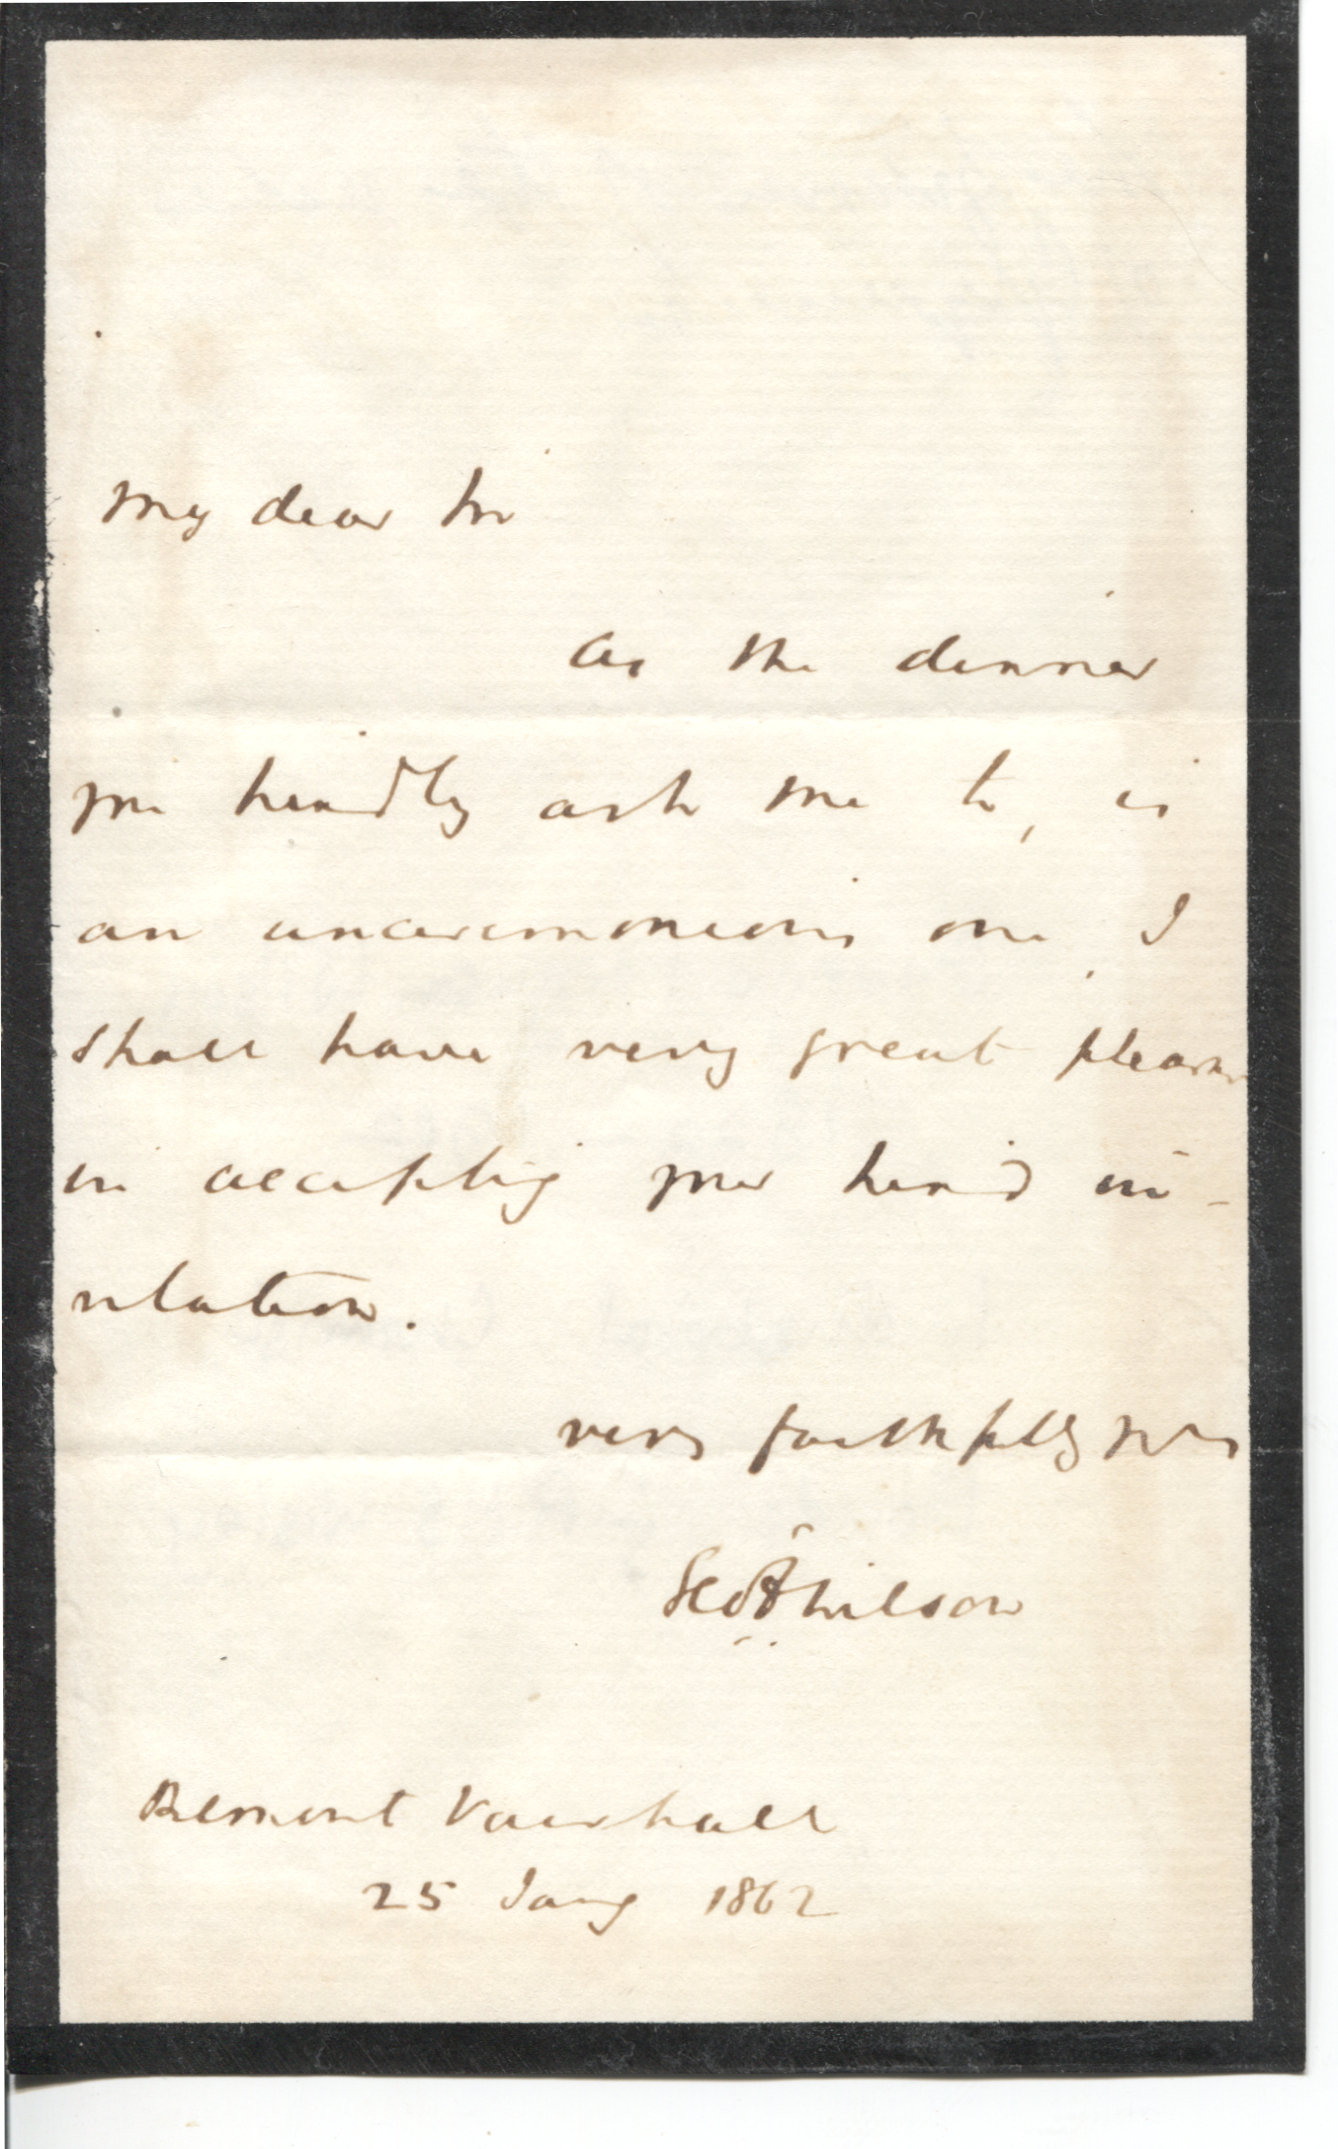 My dear Sir
As the dinner
you kindly ask me to, is
an unceremonious one, I
shall have very great pleasure
in accepting your kind in-
vitation.
very faithfully yrs
Geo F Wilson
Belmont Vauxhall
25 Jany 1862